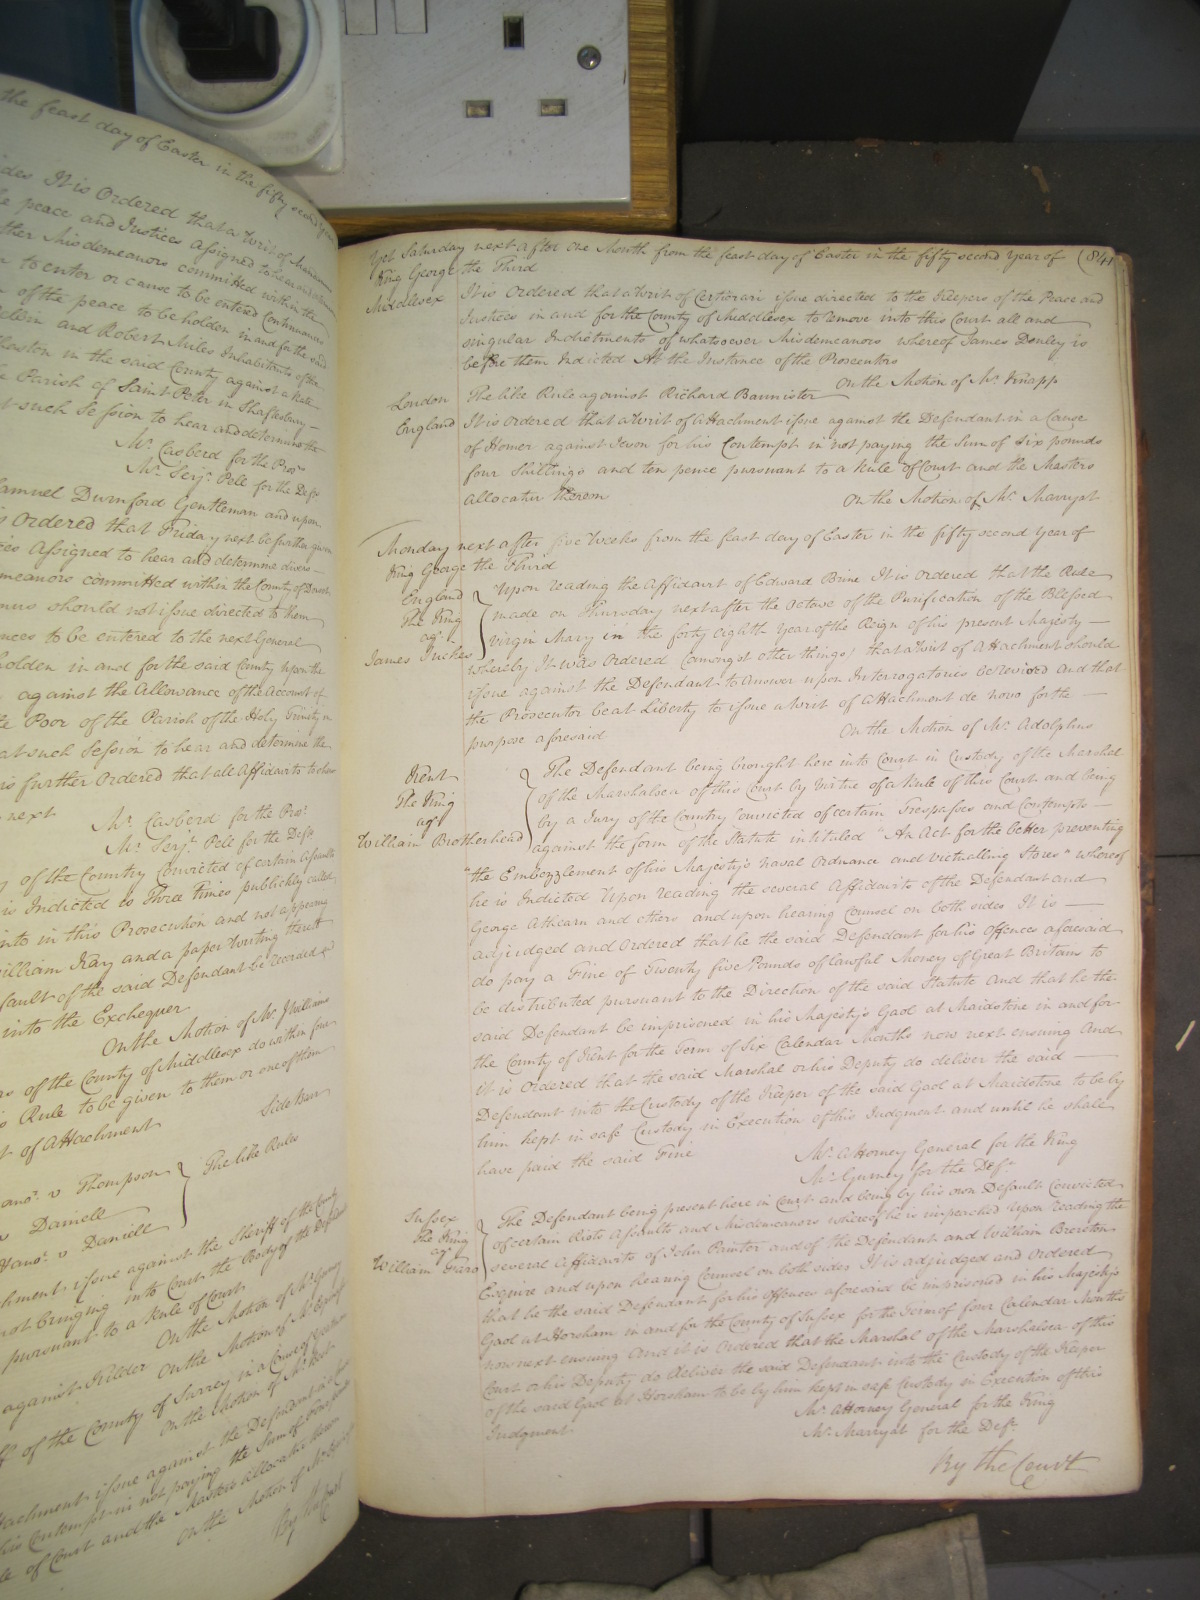 the feast day of Easter in the fifty second year
It is Ordered that a Writ of
peace and Justices assigned to hear and
other Misdemeanors committed within the
to enter or cause to be entered Continuances
of the peace to be holden in and for the said
and Robert Miles Inhabitants of the
in the said County against a Rate
Parish of Saint Peter in Shaftesbury
such Session to hear and determine the
Mr. Casberd for the Pros.r
Mr. Serj.t Pele for the Def.t
Samuel Durnford Gentleman and upon
Ordered that Friday next be further given
Assigned to hear and determine divers
committed within the County of Dorset
should not issue directed to them
to be entered to the next General
holden in and for the said County upon the
against the Allowance of the Account of
Poor of the Parish of the Holy Trinity in
at such Session to hear and determine the
is further Ordered that all Affidavits to
next
Mr. Casberd for the Pros.r
Mr. Serj.t Pele for the Def.t
of the Country Convicted of certain Assaults
is Indicted is Three Times publickly called
into in this Prosecution and not appearing
William Kay and a paper Writing thereto
of the said Defendant be recorded
into the Exchequer
On the Motion of Mr. J Williams
of the County of Middlesex do within four
Rule to be given to them or one of them
of Attachment
Side Bar
ano.r v Thompson
The like Rules
v Daniell
ano.r v Daniell
issue against the Sheriff of the County
not bringing into Court the Body of the Defendant
pursuant to a Rule of Court
On the Motion of Mr. Gurney
against Kilder On the Motion of Mr. Espinasse
of the County of Surrey in a Cause of
On the Motion of Mr.
Attachment issue against the Defendant in a
his Contempt in not paying the Sum of
of Court and the Masters Allocatur thereon
On the Motion of Mr.
By the Court
Yet Saturday next after one Month from the feast day of Easter in the fifty second year of (841
King George the Third
Middlesex It is Ordered that a Writ of Certiorari issue directed to the Keepers of the Peace and
Justices in and for the County of Middlesex to remove into this Court all and
singular Indictments of whatsoever Misdemeanors whereof James Donley is
before them Indicted At the Instance of the Prosecutors
On the Motion of Mr. Knapp
London The like Rule against Richard Bannister
England It is Ordered that a Writ of Attachment issue against the Defendant in a Cause
of Homer against Ivon for his Contempt in not paying the Sum of Six pounds
four Shillings and ten pence pursuant to a Rule of Court and the Masters
Allocatur thereon
On the Motion of Mr. Marryat
Monday next after five Weeks from the feast day of Easter in the fifty second year of
King George the Third
England Upon reading the Affidavit of Edward Brine It is Ordered that the Rule
The King made on Thursday next after the Octave of the Purification of the Blessed
ag.t Virgin Mary in the forty eighth Year of the Reign of his present Majesty
James Inches whereby It was Ordered (amongst other things) that a Writ of Attachment should
issue against the Defendant to answer upon Interrogatories be revived and that
the Prosecutor be at Liberty to issue a Writ of Attachment de novo for the
purpose aforesaid
On the Motion of Mr. Adolphus
Kent The Defendant being brought here into Court in Custody of the Marshal
The King of the Marshalsea of this Court by Virtue of a Rule of this Court and being
ag.t by a Jury of the Country Convicted of certain Trespasses and Contempts
William Brotherhead against the form of the Statute intituled "An Act for the better preventing
"the Embezzlement of his Majesty's Naval Ordnance and Victualling Stores" whereof
he is Indicted Upon reading the several Affidavits of the Defendant and
George Athearn and others and upon hearing Counsel on both sides It is
adjudged and Ordered that he the said Defendant for his offences aforesaid
do pay a Fine of Twenty five Pounds of lawful Money of Great Britain to
be distributed pursuant to the Direction of the said Statute And that he the
said Defendant be imprisoned in his Majesty's Gaol at Maidstone in and for
the County of Kent for the Term of Six Calendar Months now next ensuing And
it is Ordered that the said Marshal or his Deputy do deliver the said
Defendant into the Custody of the Keeper of the said Gaol at Maidstone to be by
him kept in safe Custody in Execution of this Judgment and until he shall
have paid the said Fine
Mr. Attorney General for the King
Mr. Gurney for the Def.t
Sussex The Defendant being present here in Court and being by his own Default Convicted
The King of certain Riots Assaults and Misdemeanors whereof he is impeached Upon reading the
ag.t several Affidavits of John Panter and of the Defendant and William Brereton
William Faro Esquire and upon hearing Counsel on both sides It is adjudged and Ordered
that he the said Defendant for his offences aforesaid be imprisoned in his Majesty's
Gaol at Horsham in and for the County of Sussex for the Term of four Calendar Months
now next ensuing And it is Ordered that the Marshal of the Marshalsea of this
Court or his Deputy do deliver the said Defendant into the Custody of the Keeper
of the said Gaol at Horsham to be by him kept in safe Custody in Execution of this
Judgment
Mr. Attorney General for the King
Mr. Marryat for the Def.t
By the Court